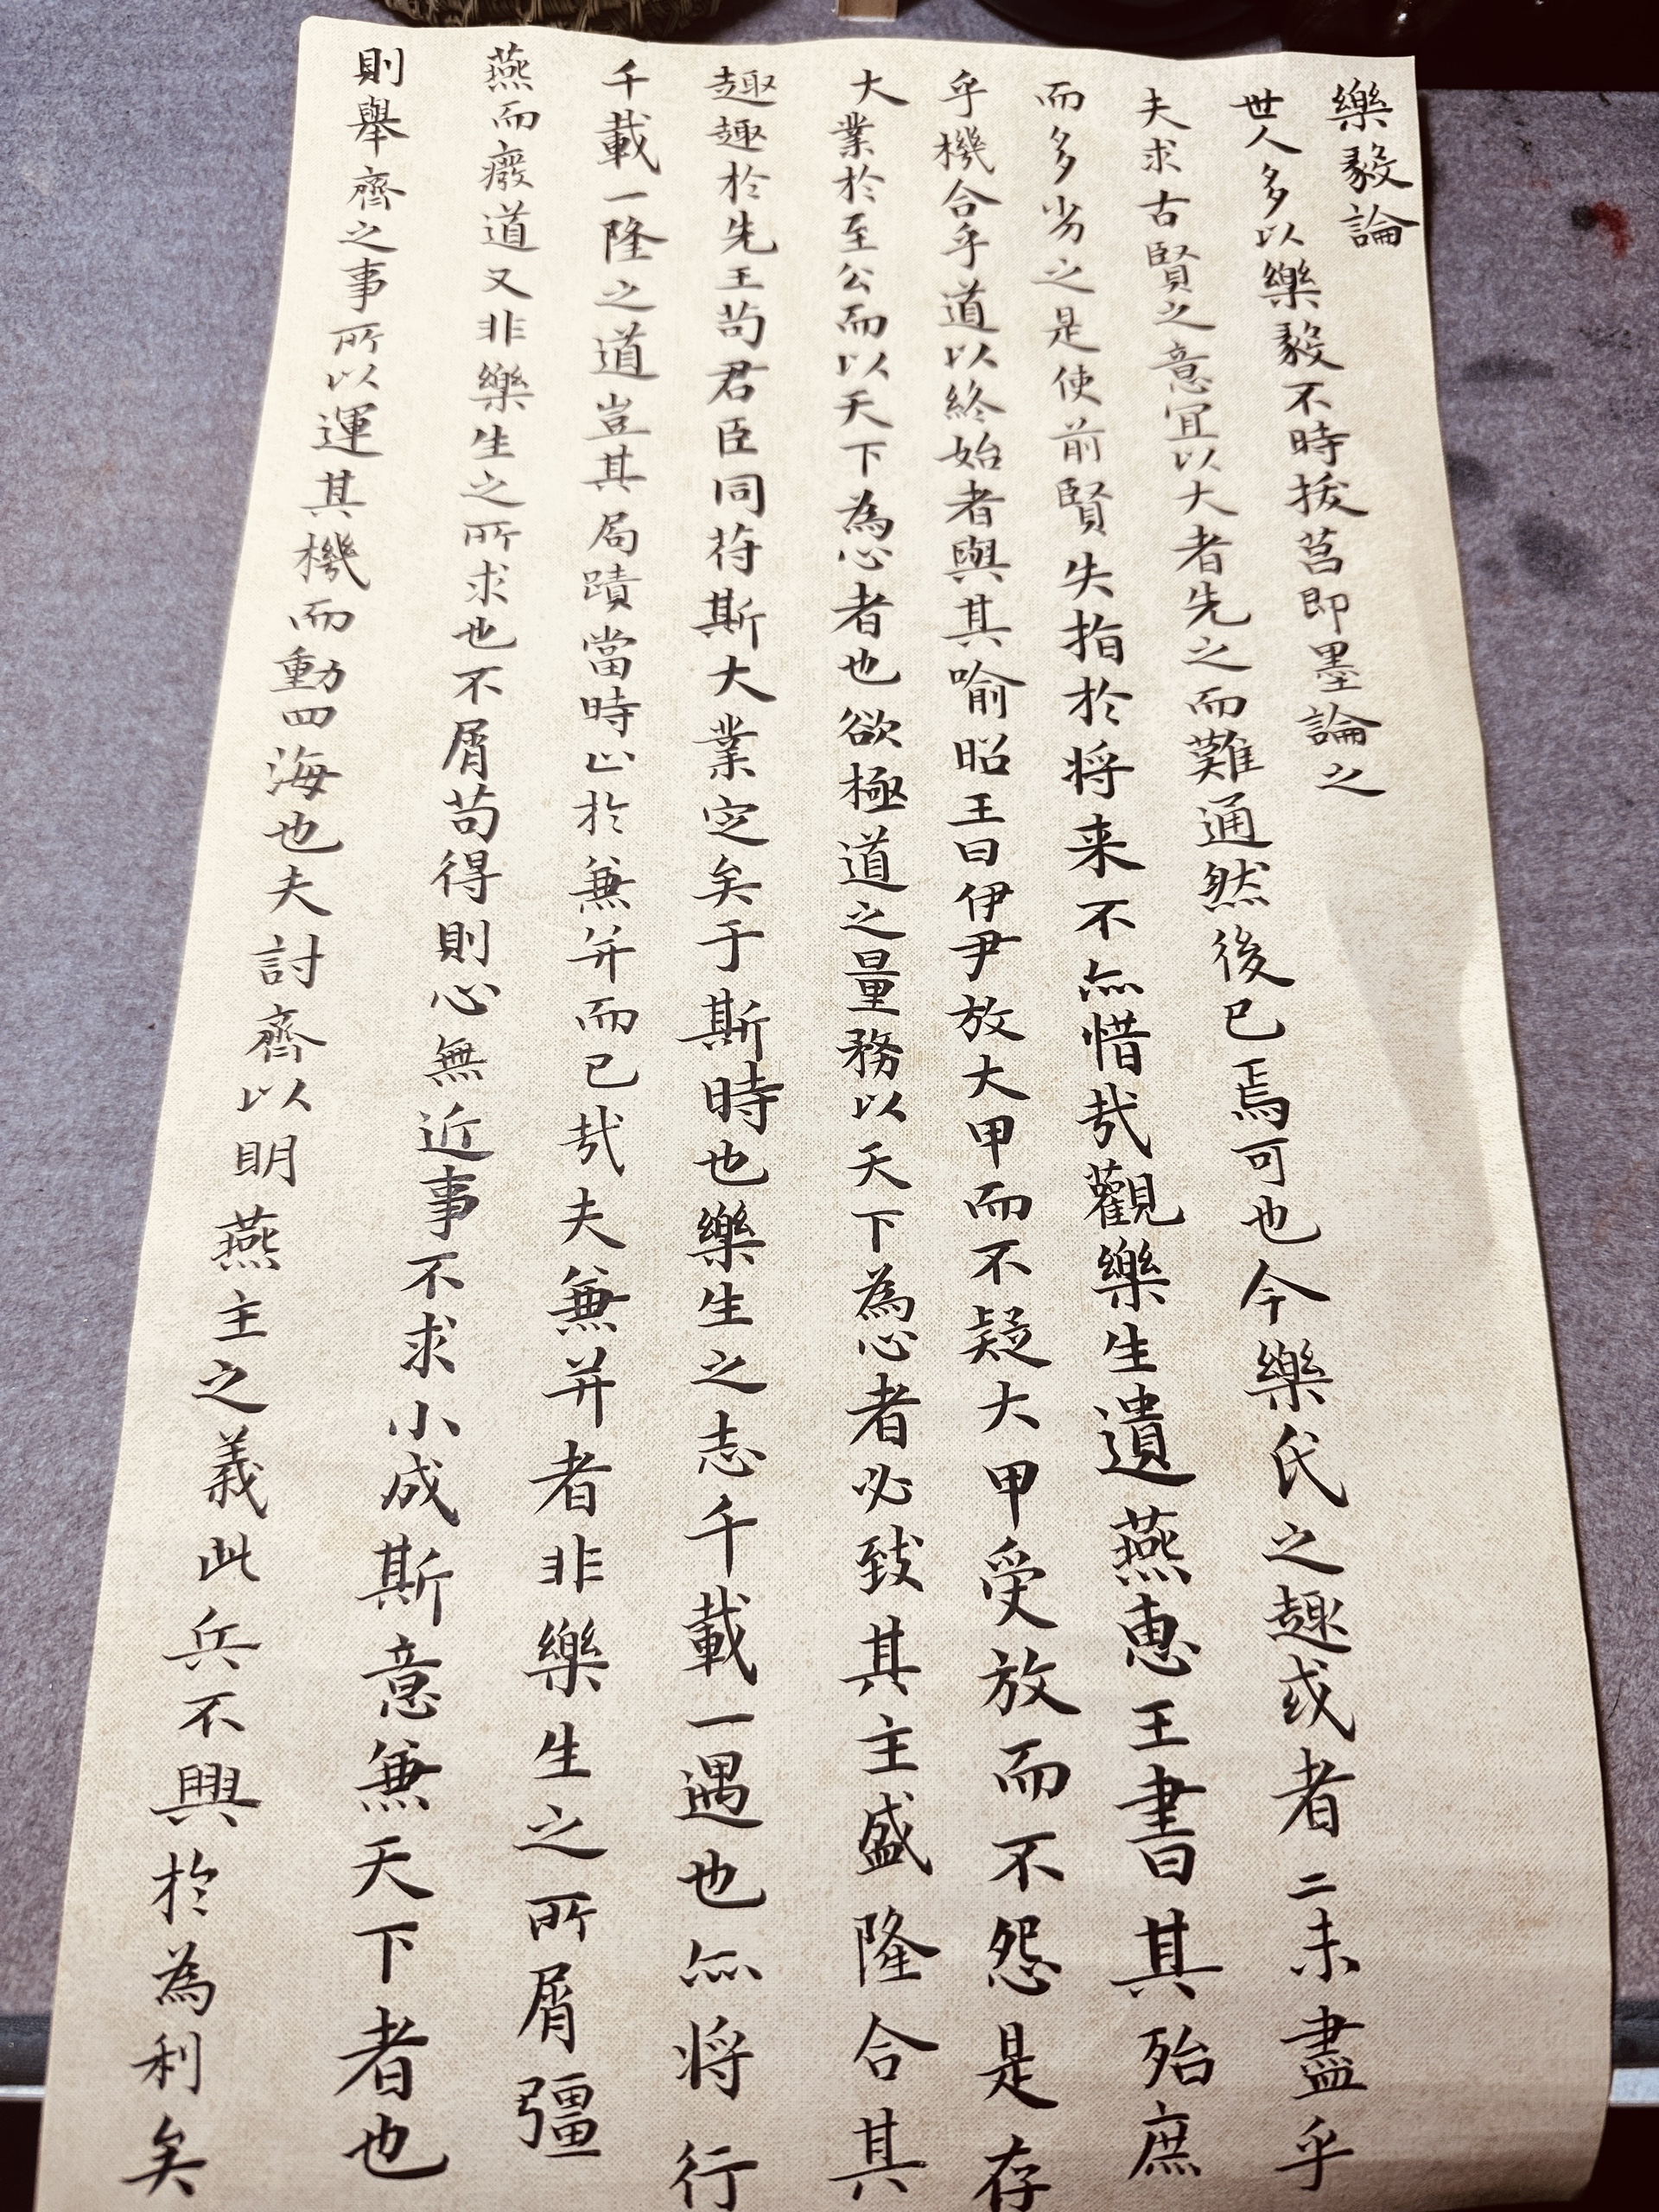 樂毅論
世人多以樂毅不時拔莒即墨論之
夫求古賢之意宜以大者先之而難通然後已焉可也今樂氏之趣或者二未盡乎
而多劣之是使前賢失指於将来不亦惜哉觀樂生遺燕惠王書其殆庶
乎機合乎道以終始者與其喻昭王曰伊尹放大甲而不疑大甲受放而不怨是存
大業於至公而以天下為心者也欲極道之量務以天下為心者必致其主盛隆合其
趣趣於先王苟君臣同苻斯大業定矣于斯時也樂生之志千載一遇也亦将行
千載一隆之道豈其局蹟當時止於兼并而已哉夫兼并者非樂生之所屑彊
燕而癈道又非樂生之所求也不屑苟得則心無近事不求小成斯意兼天下者也
則舉齊之事所以運其機而動四海也夫討齊以明燕主之義此兵不興於為利矣